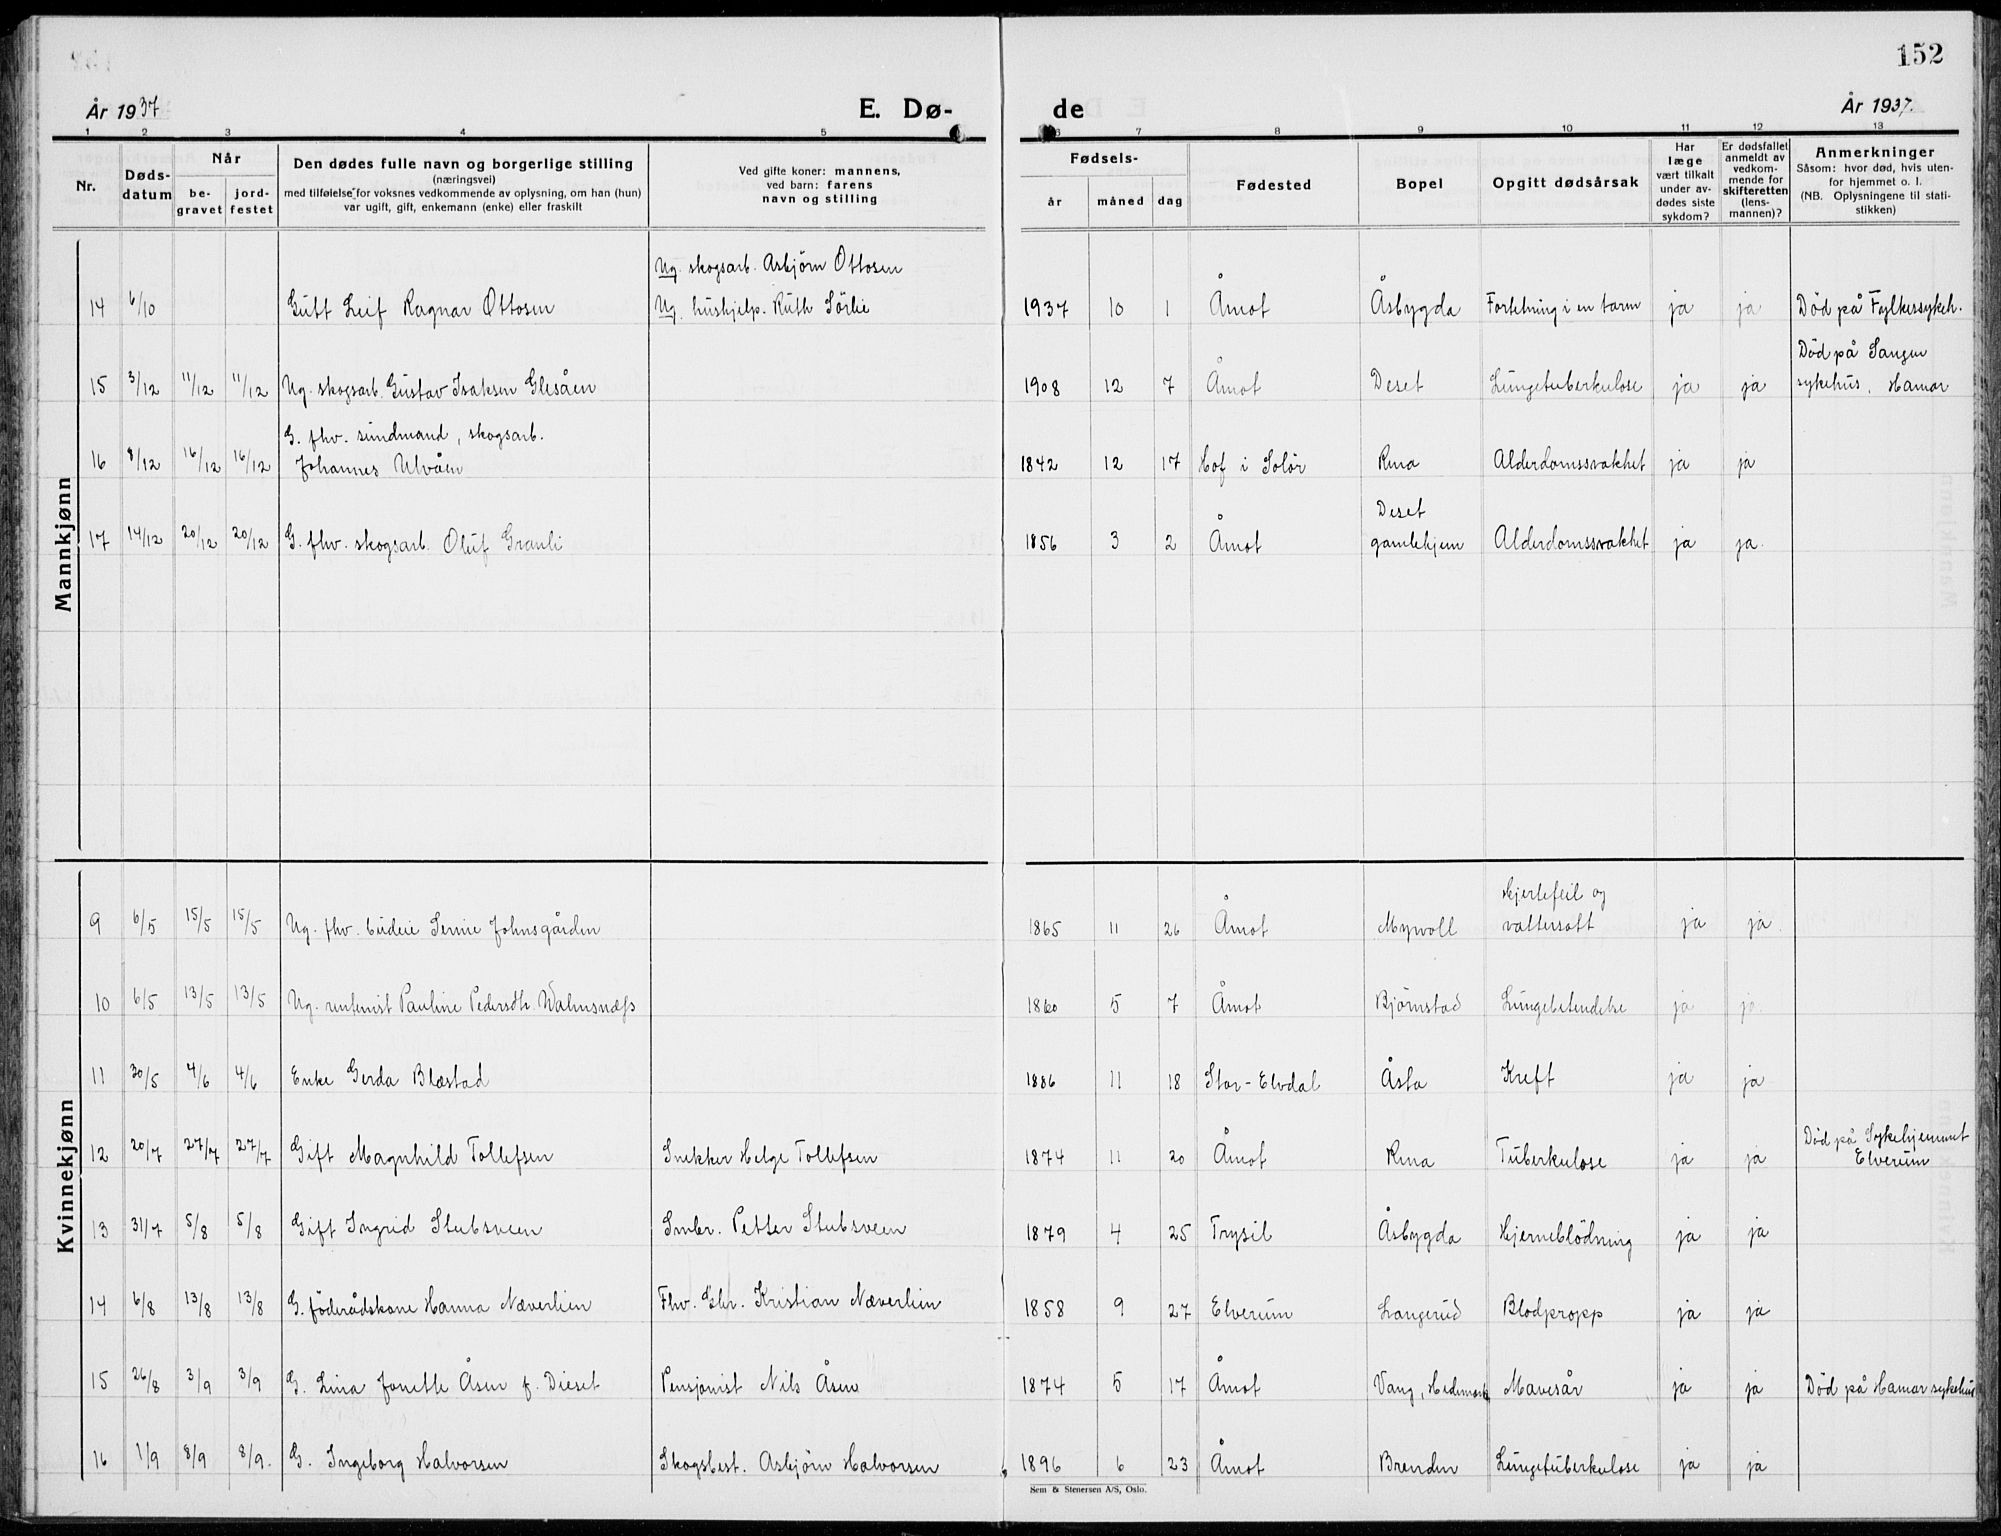 152
År 1937
E. Dø-
de
År 1937.
1 2 3 4 5 6 7 8 9 10 11 12 13
Nr.
Døds-
datum
Når
be-
gravet
jord-
festet
Den dødes fulle navn og borgerlige stilling
(næringsvei)
med tilføielse for voksnes vedkommende av oplysning, om han (hun)
var ugift, gift, enkemann (enke) eller fraskilt
Ved gifte koner: mannens,
ved barn: farens
navn og stilling
Fødsels-
år måned dag
Fødested
Bopel
Opgitt dødsårsak
Har
læge
vært tilkalt
under av-
dødes siste
sykdom?
Er dødsfallet
anmeldt av
vedkom-
mende for
skifteretten
(lens-
mannen)?
Anmerkninger
Såsom: hvor død, hvis uten-
for hjemmet o. l.
(NB. Oplysningene til stati-
stikken)
Mannkjønn
Ug. skogsarb. Asbjørn Ottosen
14 6/10 Gutt Leif Ragnar Ottosen Ug. hushjelp. Ruth Sörlie 1937 10 1 Åmot Åsbygda Fortetning i en tarm ja ja Død på Fylkessykeh.
Død på Sangen
15 3/12 11/12 11/12 Ug. skogsarb. Gustav Isaksen Glesåen 1908 12 7 Åmot Deset Lungetuberkulose ja ja sykehus, Hamar
G. fhv. sundmand, skogsarb.
16 8/12 16/12 16/12 Johannes Ulvåen 1842 12 17 Hof i Solör Rena Alderdomssvakhet ja ja
Deset
17 14/12 20/12 20/12 G. fhv. skogsarb. Oluf Granli 1856 3 2 Åmot gamlehjem Alderdomssvakhet ja ja.
Kvinnekjønn
Hjertefeil og
9 6/5 15/5 15/5 Ug. fhv. budeie Sernie Johnsgården 1865 11 26 Åmot Myrvoll vattersott ja ja.
10 6/5 13/5 13/5 Ug. rentenist Pauline Pedersdtr. Walmsnæss 1860 5 7 Åmot Bjørnstad Lungebetendelse ja ja.
11 30/5 4/6 4/6 Enke Gerda Blæstad 1886 11 18 Stor-Elvdal Åsta Kreft ja ja
Død på Sykehjemmet
12 20/7 27/7 27/7 Gift Magnhild Tollefsen Snekker Helge Tollefsen 1874 11 20 Åmot Rena Tuberkulose ja ja Elverum
13 31/7 5/8 5/8 Gift Ingrid Stubsveen Smbr. Petter Stubsveen 1879 4 25 Trysil Åsbygda Hjerneblödning ja ja
14 6/8 13/8 13/8 G. föderådskone Hanna Næverlien Fhv. Gbr. Kristian Næverlien 1858 9 27 Elverum Langerud Blodpropp ja ja
15 26/8 3/9 3/9 G. Lina Jonette Åsen f. Dieset Pensjonist Nils Åsen 1874 5 17 Åmot Vang, Hedemark Mavesår ja ja Død på Hamar sykehus
16 1/9 8/9 8/9. G. Ingeborg Halvorsen Skogsbest. Asbjørn Halvorsen 1896 6 23 Åmot Brenden Lungetuberkulose ja ja
Sem & Stenersen A/S, Oslo.